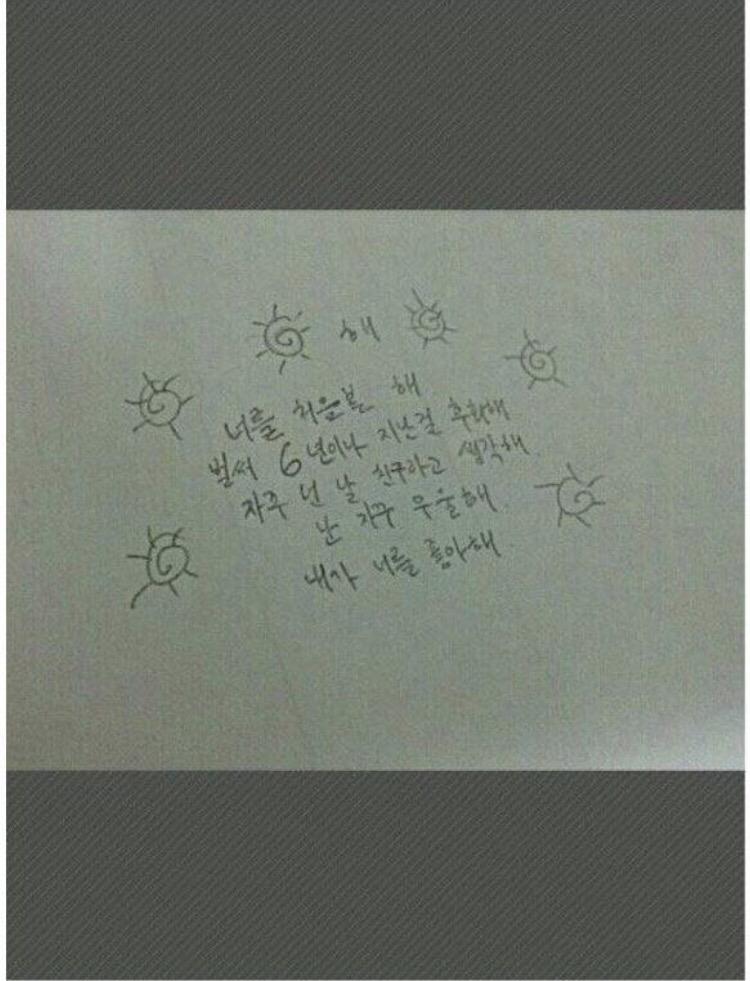 해
너를 처음본 해
벌써 6년이나 지난걸 축하해
자주 넌 날 친구라고 생각해
난 자꾸 우울해.
내가 너를 좋아해.